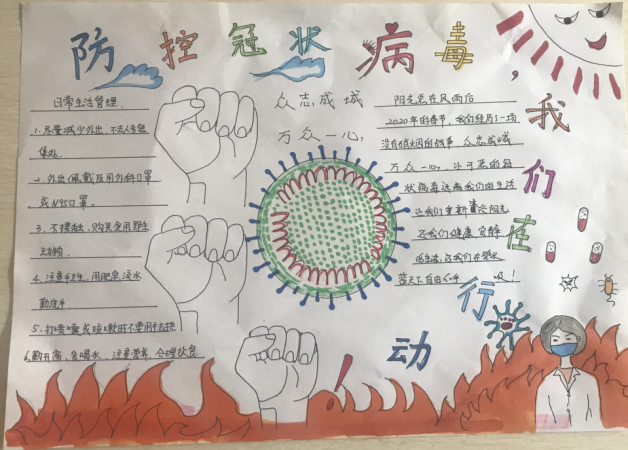 防控冠状病毒，我们在行动！
日常生活管理
1.尽量减少外出，不去人多密
集处
2.外出佩戴医用外科口罩
或N95口罩。
3.不接触、购买食用野生
动物。
4.注意卫生，用肥皂液水
勤洗手
5.打喷嚏或咳嗽时不要用手去挡
6.勤开窗，多喝水，注意营养，合理饮食
众志成城
万众一心，
阳光总在风雨后
2020年的春节，我们经历了一场
没有硝烟的战争，众志成城
万众一心，
状病毒远离我们的生活
让我们重新
还我们健康
让我们在碧水
蓝天下自由 吸！